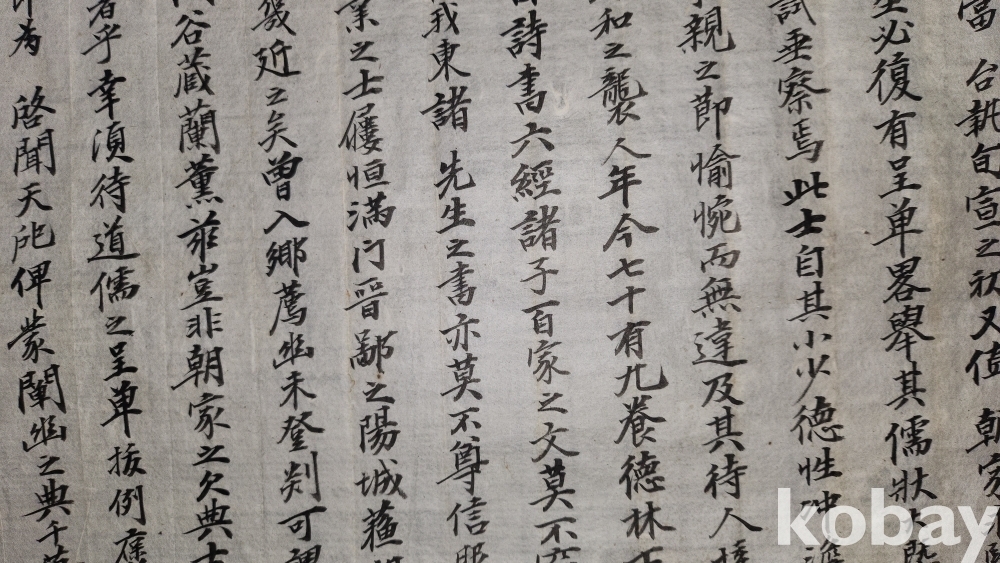 當 台執旬宣之初又值 朝家
必復有呈单畧舉其儒狀大槩
試垂察焉此士自其小少德性冲澹
親之節愉惋而無違及其待人
和之襲人年今七十有九養德林下
詩書六經諸子百家之文莫不
我東諸 先生之書亦莫不尊信
業之士屨恒滿门晉鄙之陽城薛
幾近之矣曾入鄉薦幽未登剡可謂
谷蔵蘭薰玆豈非朝家之欠典
者乎幸湏待道儒之呈单援例
為 啓聞天陛俾蒙闡幽之典千萬
kobay